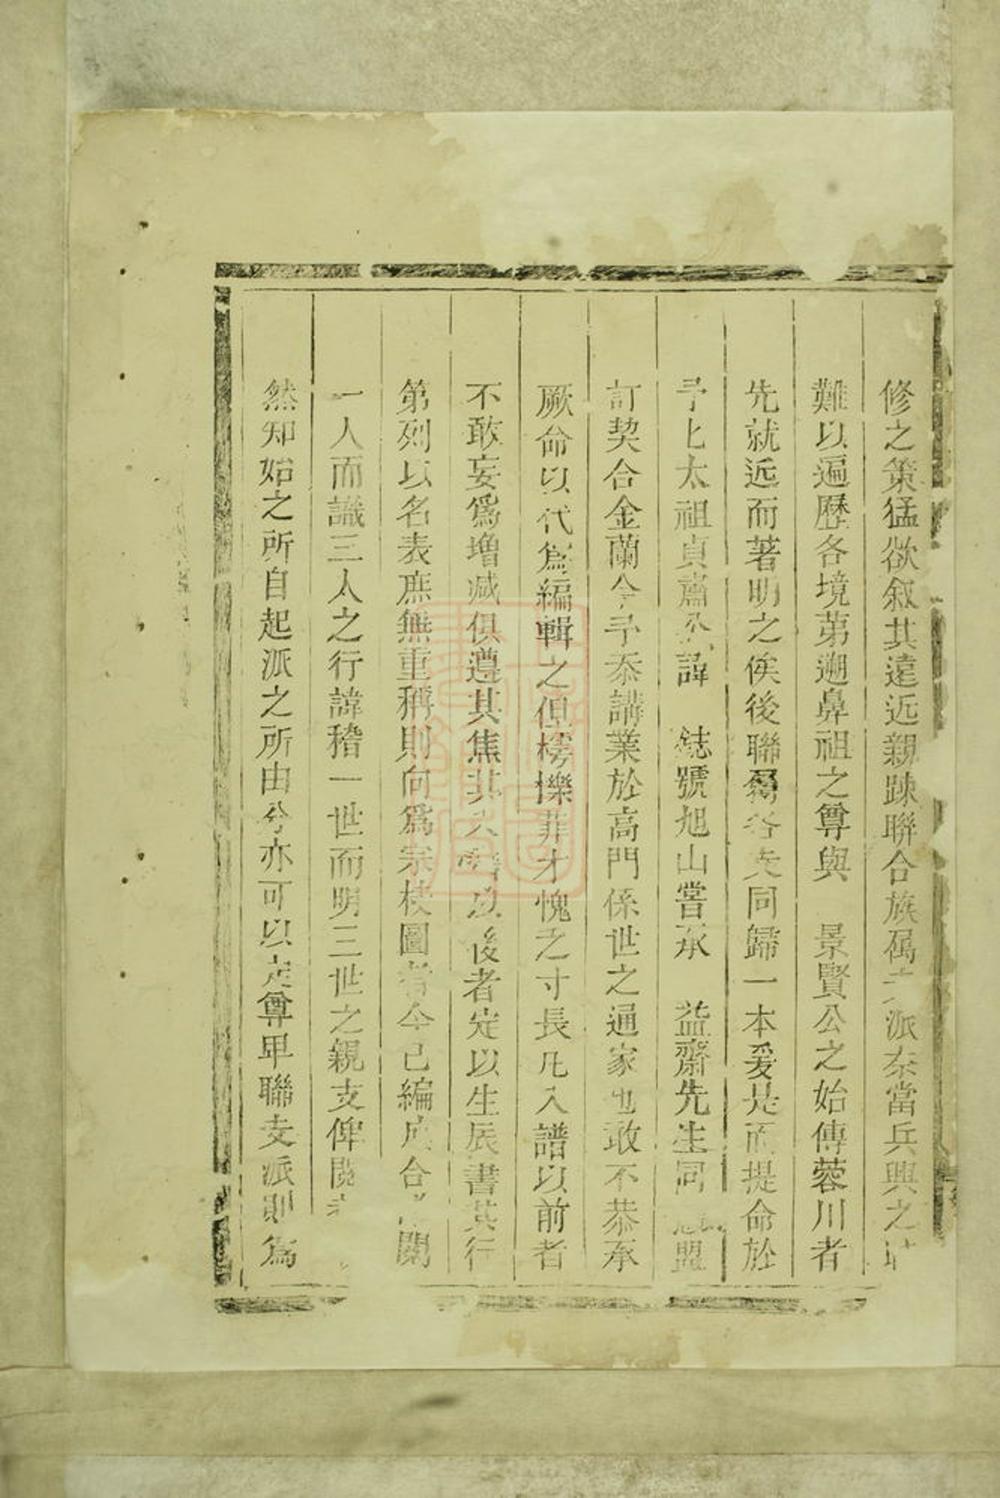 修之策猛欲敘其遠近親踈聯合族属之派奈當兵興之
難以遍歷各境苐遡鼻祖之尊與 景賢公之始傳蓉川者
先就近而著明之俟後聯屬各矣同歸一本爰是而提命於
予匕太祖貞齋公諱 鋕號旭山嘗承 益齋先生同 盟
訂契合金蘭今予忝講業於高門係世之通家也敢不恭承
厥命以代爲編輯之但樗櫟菲才愧乏寸長凡入譜以前者
不敢妄爲増減俱遵其焦其 以後者定以生辰書其行
第列以名表庶無重稱則向爲宗枝圖者今已編 合 闕
一人而識三人之行諱稽一世而明三世之親支俾閱者
然知始之所自起派之所由分亦可以定尊卑聯支派則爲